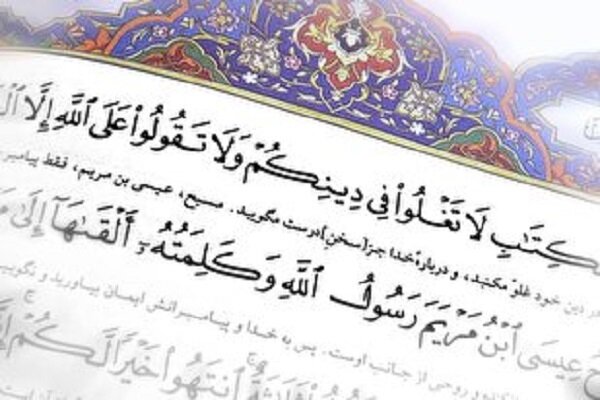 ٱلْكِتَٰبِ لَا تَغْلُوا۟ فِي دِينِكُمْ وَلَا تَقُولُوا۟ عَلَى ٱللَّهِ إِلَّا
در دین خود غلوّ مکنید، و دربارهٔ خدا جز [سخنِ] درست مگویید. مسیح، عیسی بن مریم، فقط پیامبر
عِيسَى ٱبْنُ مَرْيَمَ رَسُولُ ٱللَّهِ وَكَلِمَتُهُۥٓ أَلْقَىٰهَآ إِلَىٰ
و روحی از جانب اوست. پس به خدا و پیامبرانش ایمان بیاورید و نگویید
ثَلَٰثَةٌ ٱنتَهُوا۟ خَيْرًا لَّكُمْ